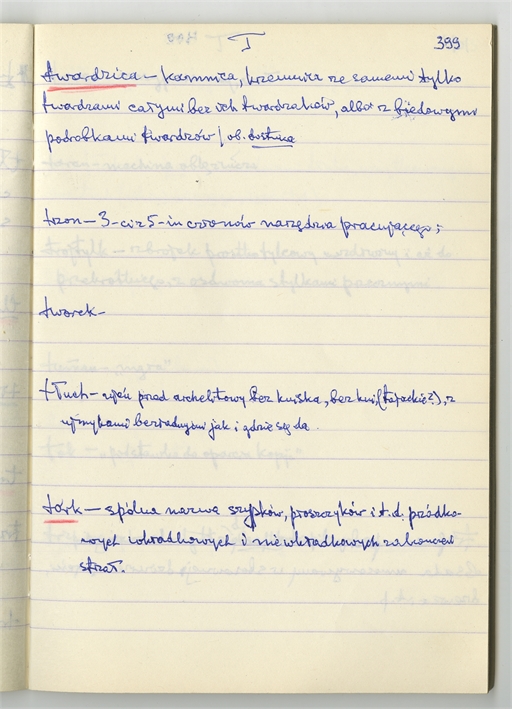 T 399
twardzica – kamnica, krzemnica ze samemi tylko
twardzami całymi bez ich twardzaków, albo z biedowymi
podrobkami twardzów / ob. dostnica
trzon – 3-ci z 5-in członów narzędzia pracującego;
tworek –
tłuch – wiek przed archelitowy bez kuiska, bez kui, z
ujmykami bezradnymi jak i gdzie się da.
tórk – spólna nazwa szypków, proszczyków i t.d. przódko-
wych wkładkowych i niewkładkowych zakończeń
strzał.